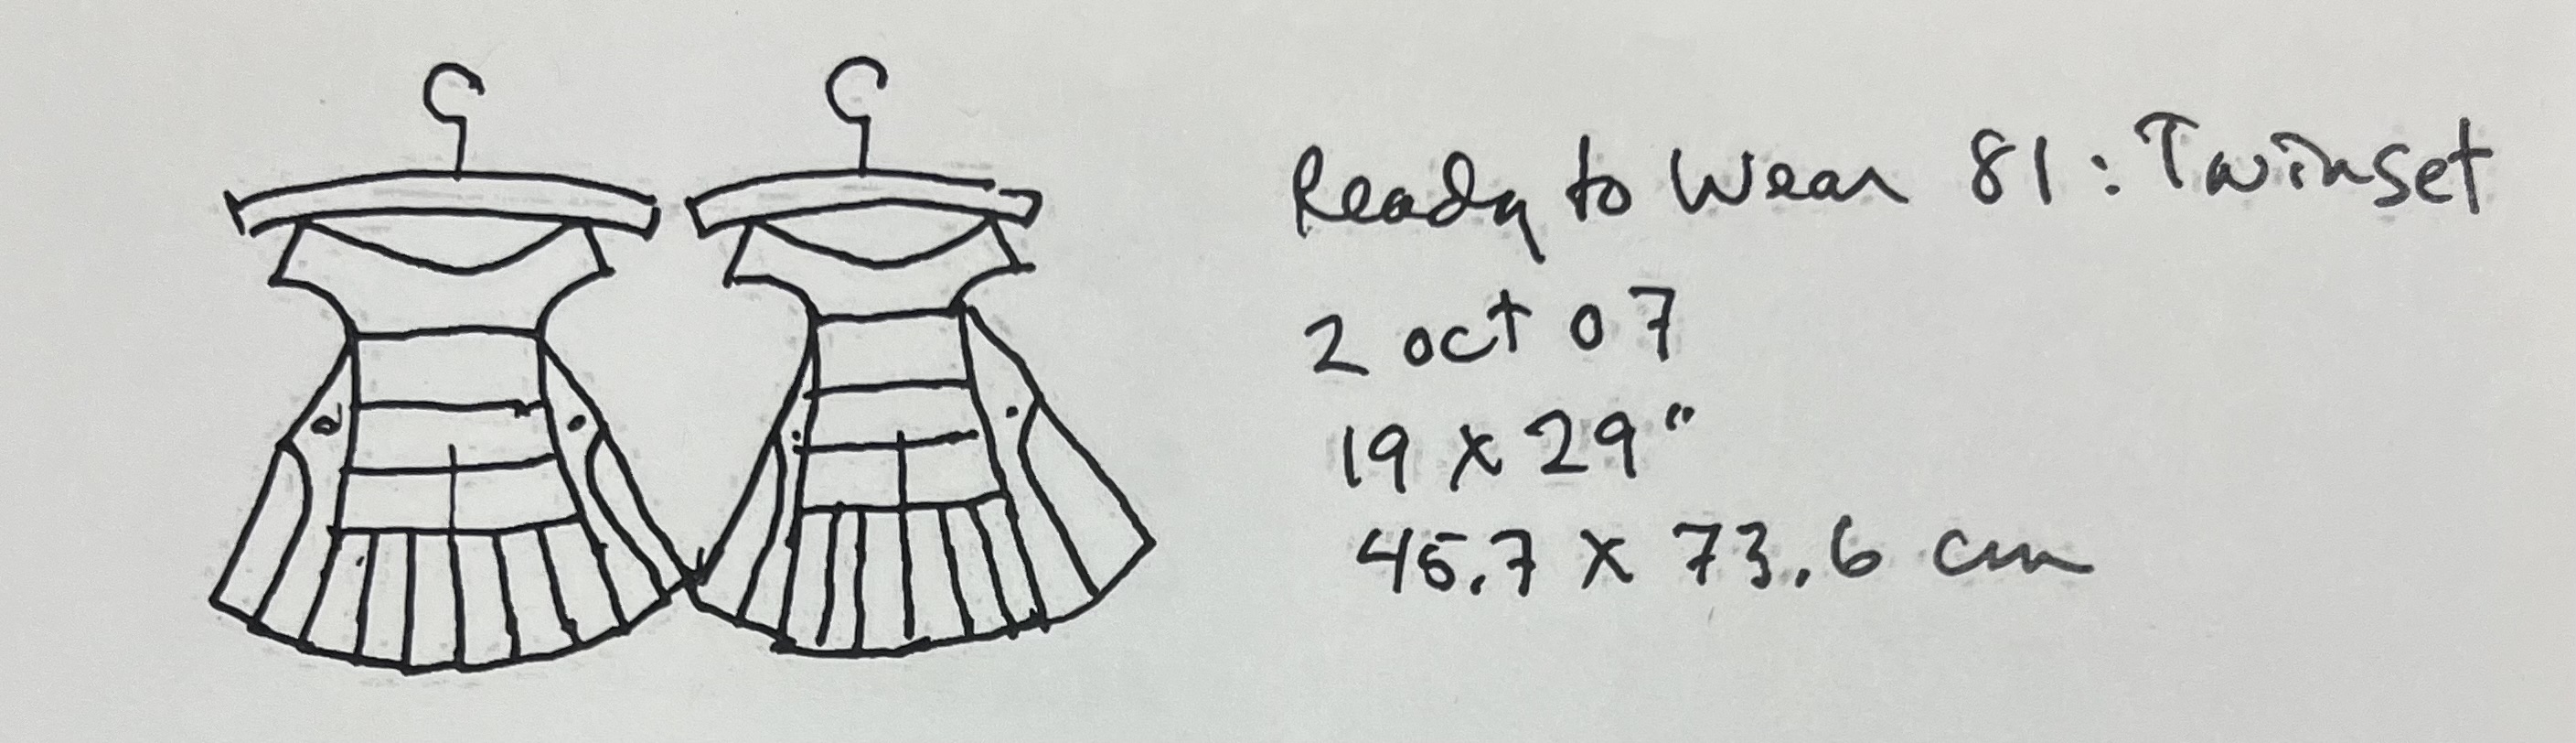 Ready to Wear 81: Twinset
2 oct 07
19 x 29"
45.7 x 73.6 cm